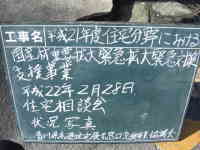 工事名 平成21年度住宅分野における
国産材需要拡大緊急拡大緊急対策
支援事業
平成22年2月28日
住宅相談会
状況写真